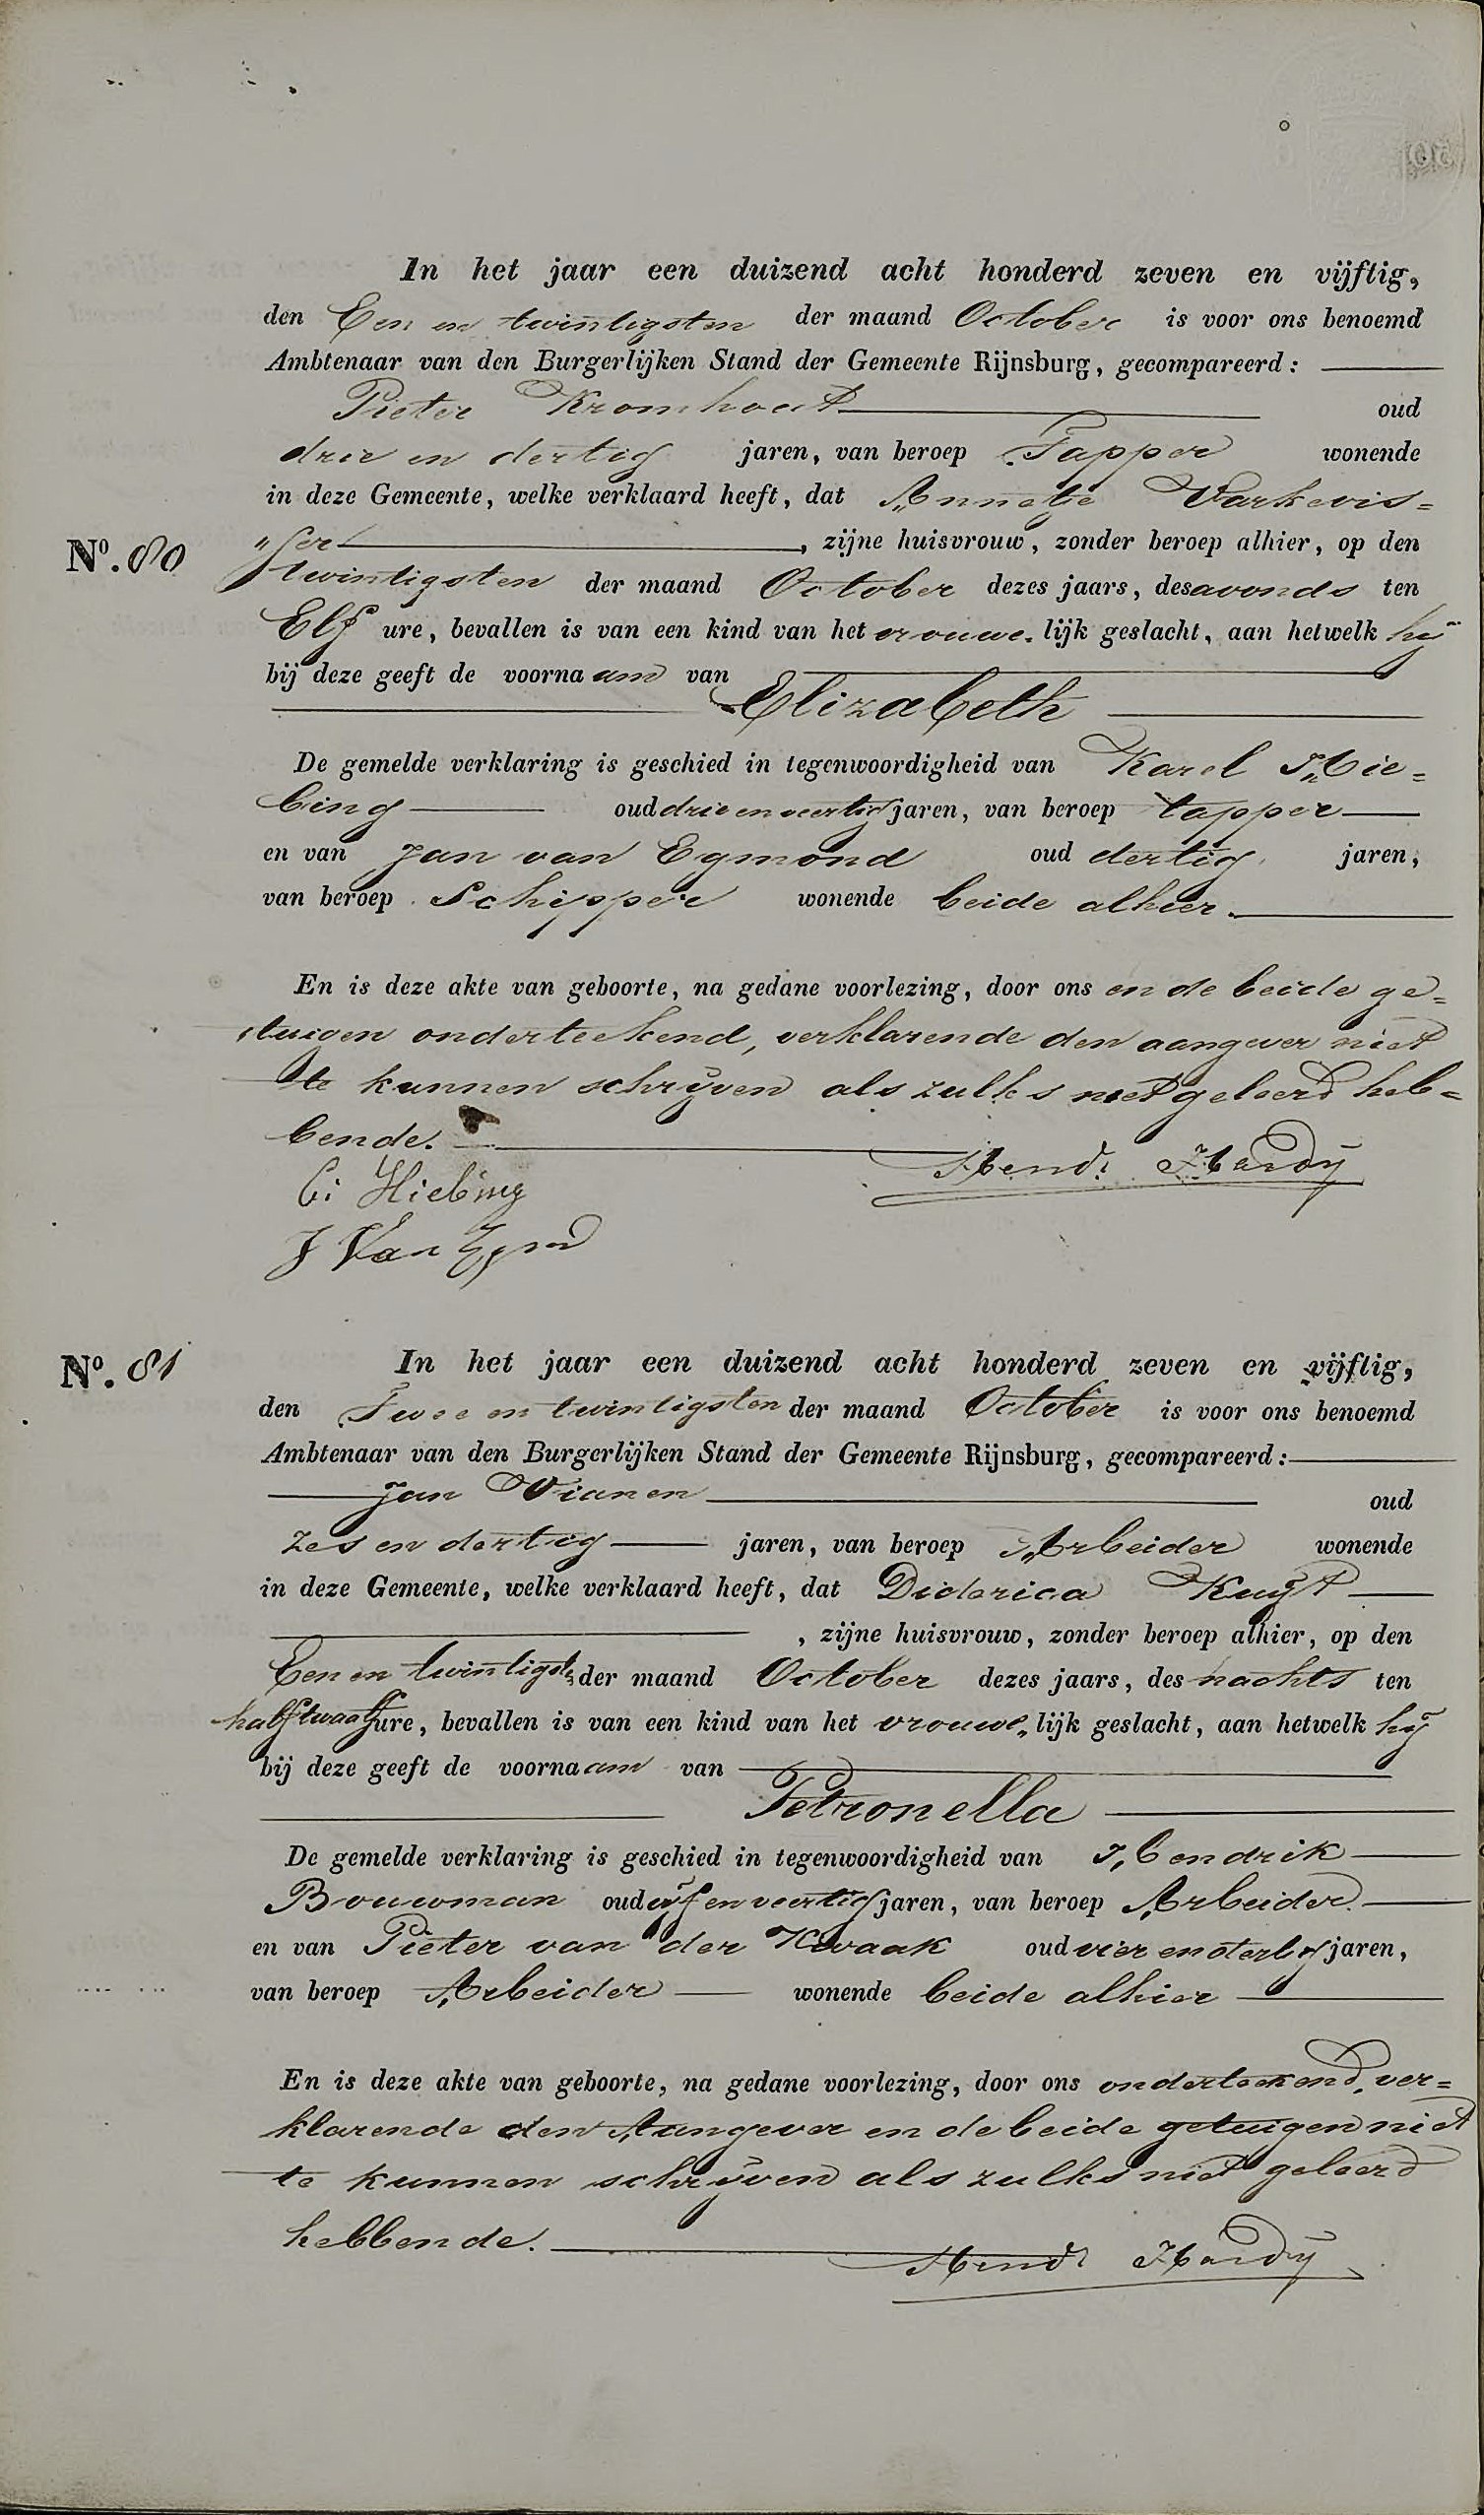 In het jaar een duizend acht honderd zeven en vijftig,
den Een en twintigsten der maand October is voor ons benoemd
Ambtenaar van den Burgerlijken Stand der Gemeente Rijnsburg, gecompareerd:
Pieter Kromhout oud
drie en dertig jaren, van beroep Tapper wonende
in deze Gemeente, welke verklaard heeft, dat Annetje Varkevis=
No. 80 „ser, zijne huisvrouw, zonder beroep alhier, op den
twintigsten der maand October dezes jaars, desavonds ten
Elf ure, bevallen is van een kind van het vrouwe„lijk geslacht, aan hetwelk hij
bij deze geeft de voornaam van
Elizabeth
De gemelde verklaring is geschied in tegenwoordigheid van Karel Hie=
bing oud drie en veertig jaren, van beroep tapper
en van Jan van Egmond oud dertig jaren,
van beroep Schipper wonende beide alhier.
En is deze akte van geboorte, na gedane voorlezing, door ons en de beide ge=
tuigen onderteekend, verklarende den aangever niet
te kunnen schrijven als zulks niet geleerd heb=
bende.
Hend. Hardij
C: Hiebing
J Van Egmd
No. 81 In het jaar een duizend acht honderd zeven en vijftig,
den Twee en twintigsten der maand October is voor ons benoemd
Ambtenaar van den Burgerlijken Stand der Gemeente Rijnsburg, gecompareerd:
Jan Vianen oud
zes en dertig jaren, van beroep Arbeider wonende
in deze Gemeente, welke verklaard heeft, dat Diderica Kuijt
, zijne huisvrouw, zonder beroep alhier, op den
Een en twintigstn der maand October dezes jaars, des nachts ten
half twaalf ure, bevallen is van een kind van het vrouwe„lijk geslacht, aan hetwelk hij
bij deze geeft de voornaam van
Petronella
De gemelde verklaring is geschied in tegenwoordigheid van Hendrik
Bouwman oud vijf en veertig jaren, van beroep Arbeider.
en van Pieter van der Kwaak oud vier en dertig jaren,
van beroep Arbeider wonende beide alhier
En is deze akte van geboorte, na gedane voorlezing, door ons onderteekend, ver=
klarende den Aangever en de beide getuigen niet
te kunnen schrijven als zulks niet geleerd
hebbende.
Hend. Hardij